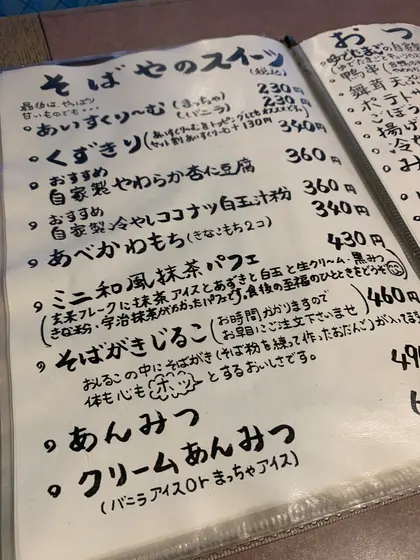 そばやのスイーツ
(税込)
最後は、やっぱり
甘いものでも・・・
あいすくり〜む(まっちゃ) 230円
(バニラ) 230円
くずきり 340円
おすすめ
自家製 やわらか杏仁豆腐 360円
おすすめ
自家製 冷やしココナツ白玉汁粉 360円
あべかわもち(きなこもち2コ) 340円
ミニ和風抹茶パフェ 430円
(玄米フレークに抹茶アイスとあずきと白玉と生クリーム・黒みつ
きな粉・宇治抹茶がかかったパフェです。食後の至福のひとときをどうぞ)
そばがきじるこ(お時間かかりますので
お早目にご注文下さいませ) 460円
おしるこの中にそばがき(そば粉を練って作ったおだんご)が入ってます
体も心もホッとするおいしさです。
あんみつ
クリームあんみつ
(バニラアイスorまっちゃアイス)
おつ
鴨串